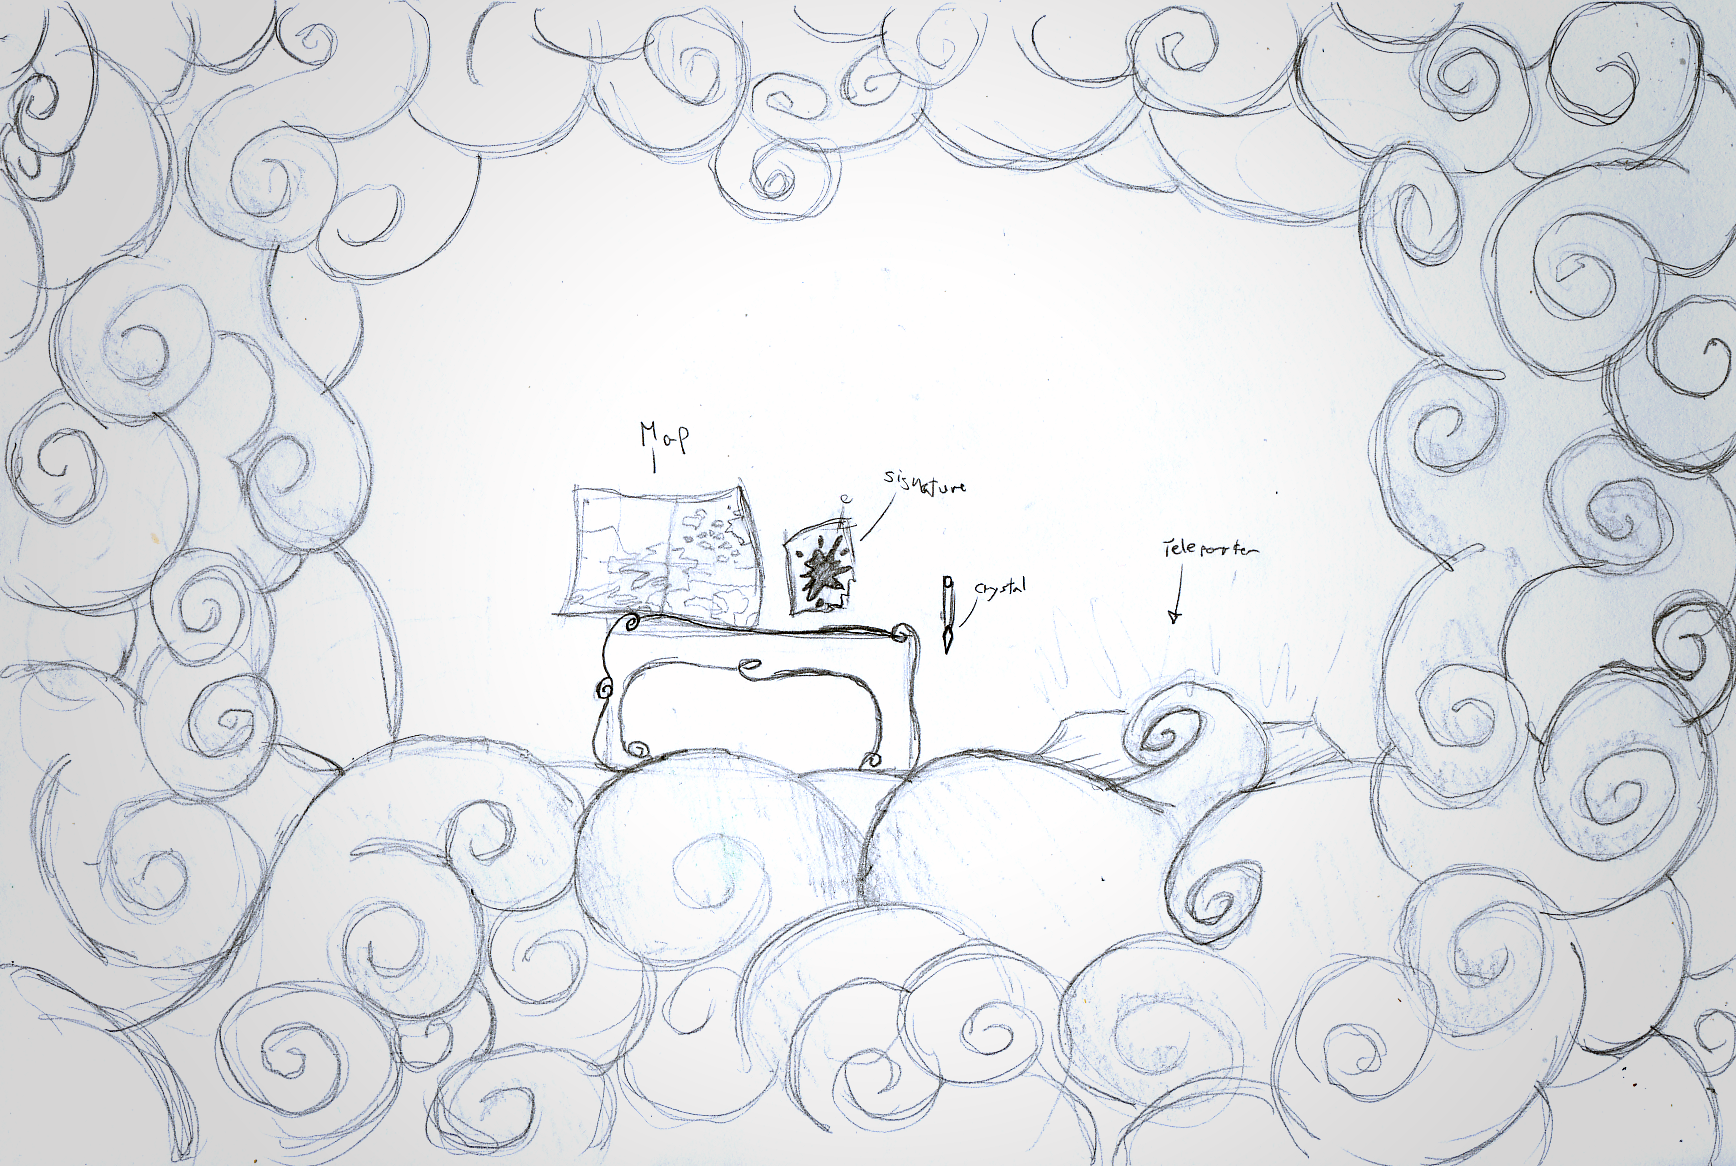 Map
signature
crystal
Teleporter